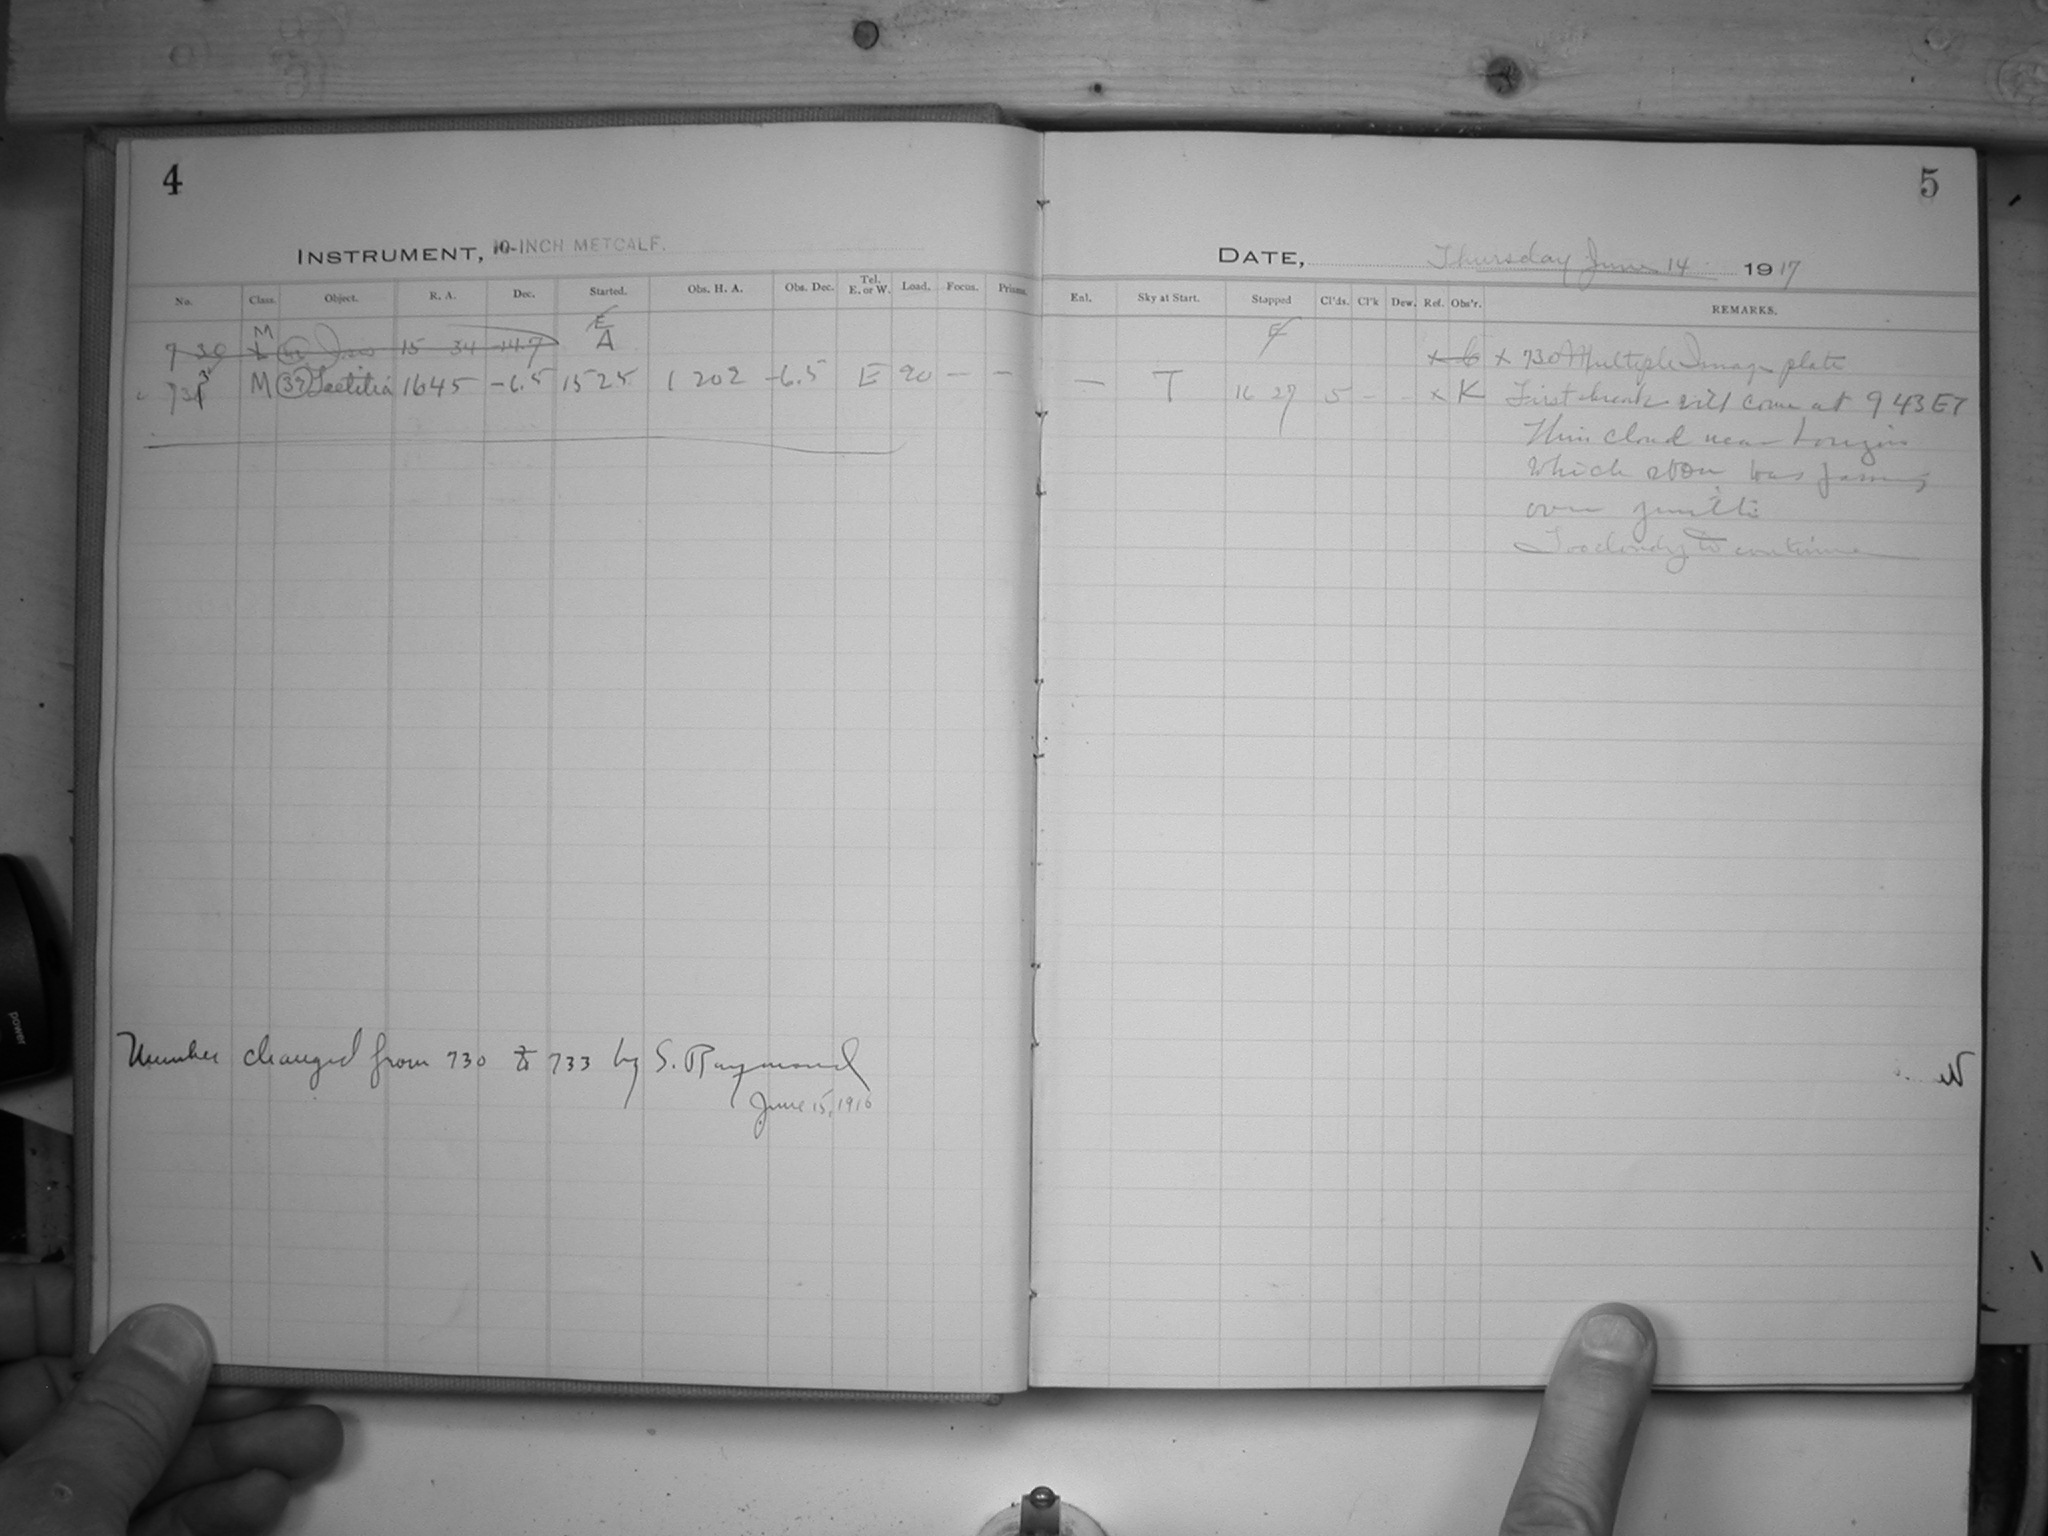 4
INSTRUMENT, 10-INCH METCALF.
No. Class. Object. R. A. Dec. Started. Obs. H. A. Obs. Dec. Tel. E. or W. Load. Focus. Prisms.
730 M (42) Isis 15 34 -14.7 E A
733 M (39) Laetitia 16 45 -6.5 15 25 1 20 2 -6.5 E 20 - -
Number changed from 730 to 733 by S. Raymond
June 15, 1916
5
DATE, Thursday June 14 1917
Enl. Sky at Start. Stopped Cl'ds. Cl'k Dew. Ref. Obs'r. REMARKS.
x 730 Multiple Image plate
- T 16 27 5 - - x K First break will come at 9 43 ET
Thin cloud near horizon
which soon was passing
over zenith
Too cloudy to continue
W
power